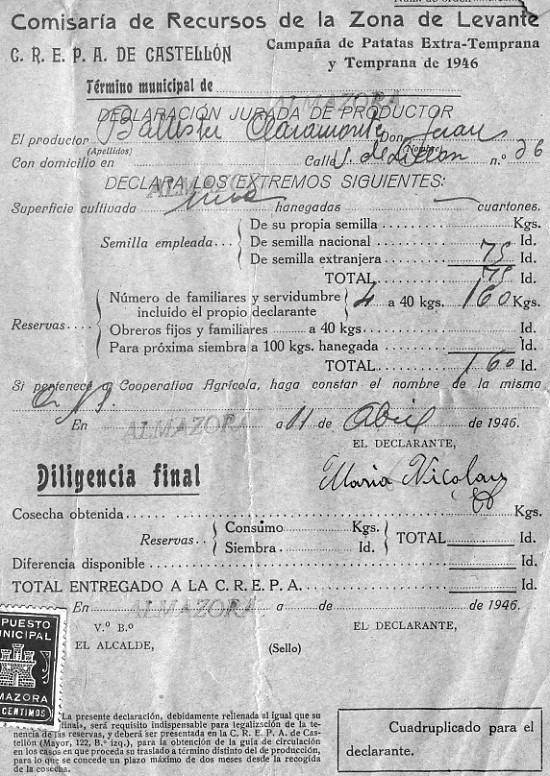 Comisaría de Recursos de la Zona de Levante
C. R. E. P. A. DE CASTELLÓN
Campaña de Patatas Extra-Temprana
y Temprana de 1946
Término municipal de
ALMAZORA
DECLARACIÓN JURADA DE PRODUCTOR
El productor Ballester Claramonte don Juan
(Apellidos) (Nombre)
Con domicilio en ALMAZORA Calle n.º 26
DECLARA LOS EXTREMOS SIGUIENTES:
Superficie cultivada hanegadas cuartones.
Semilla empleada... De su propia semilla Kgs.
De semilla nacional Id.
De semilla extranjera 75 Id.
TOTAL 75 Id.
Reservas.... Número de familiares y servidumbre incluido el propio declarante 4 a 40 kgs. 160 Kgs.
Obreros fijos y familiares a 40 kgs. Id.
Para próxima siembra a 100 kgs. hanegada Id.
TOTAL 160 Id.
Si pertenece a Cooperativa Agrícola, haga constar el nombre de la misma
En ALMAZORA a 11 de Abril de 1946.
EL DECLARANTE,
Diligencia final
Maria Nicolau
Cosecha obtenida Kgs.
Reservas... Consumo Kgs. TOTAL Id.
Siembra Id.
Diferencia disponible Id.
TOTAL ENTREGADO A LA C. R. E. P. A. Id.
En ALMAZORA a de de 1946.
V.º B.º EL DECLARANTE,
EL ALCALDE, (Sello)
PUESTO
UNICIPAL
MAZORA
CENTIMOS
La presente declaración, debidamente rellenada al igual que su
final», será requisito indispensable para legalización de la te-
nencia de las reservas, y deberá ser presentada en la C. R. E. P. A. de Cas-
tellón (Mayor, 122, B.º izq.), para la obtención de la guía de circulación
en los casos en que proceda su traslado a término distinto del de producción,
para lo que se concede un plazo máximo de dos meses desde la recogida
de la cosecha.
Cuadruplicado para el
declarante.